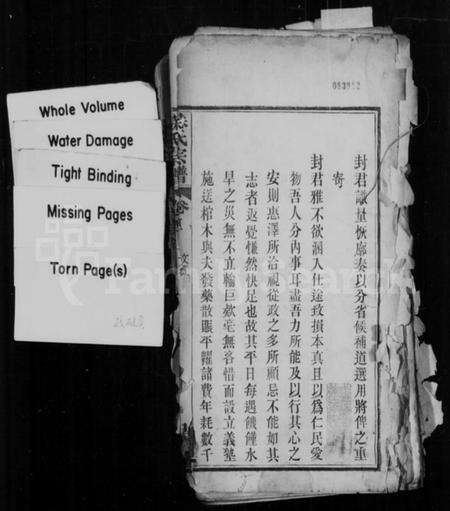 Whole Volume
Water Damage
Tight Binding
Missing Pages
Torn Page(s)
氏宗譜
卷
封君識量恢廓奏以分省候補道選用將俾之重
寄
封君雅不欲溷人仕途致損本真且以爲仁民愛
物吾人分內事耳盡吾力所能及以行其心之
安則惠澤所洽視從政之多所顧忌不能如其
志者返覺慊然快足也故其平日每遇饑饉水
旱之災無不立輸巨欵毫無吝惜而設立義塾
施送棺木與夫發藥散賑平糶諸費年耗數千